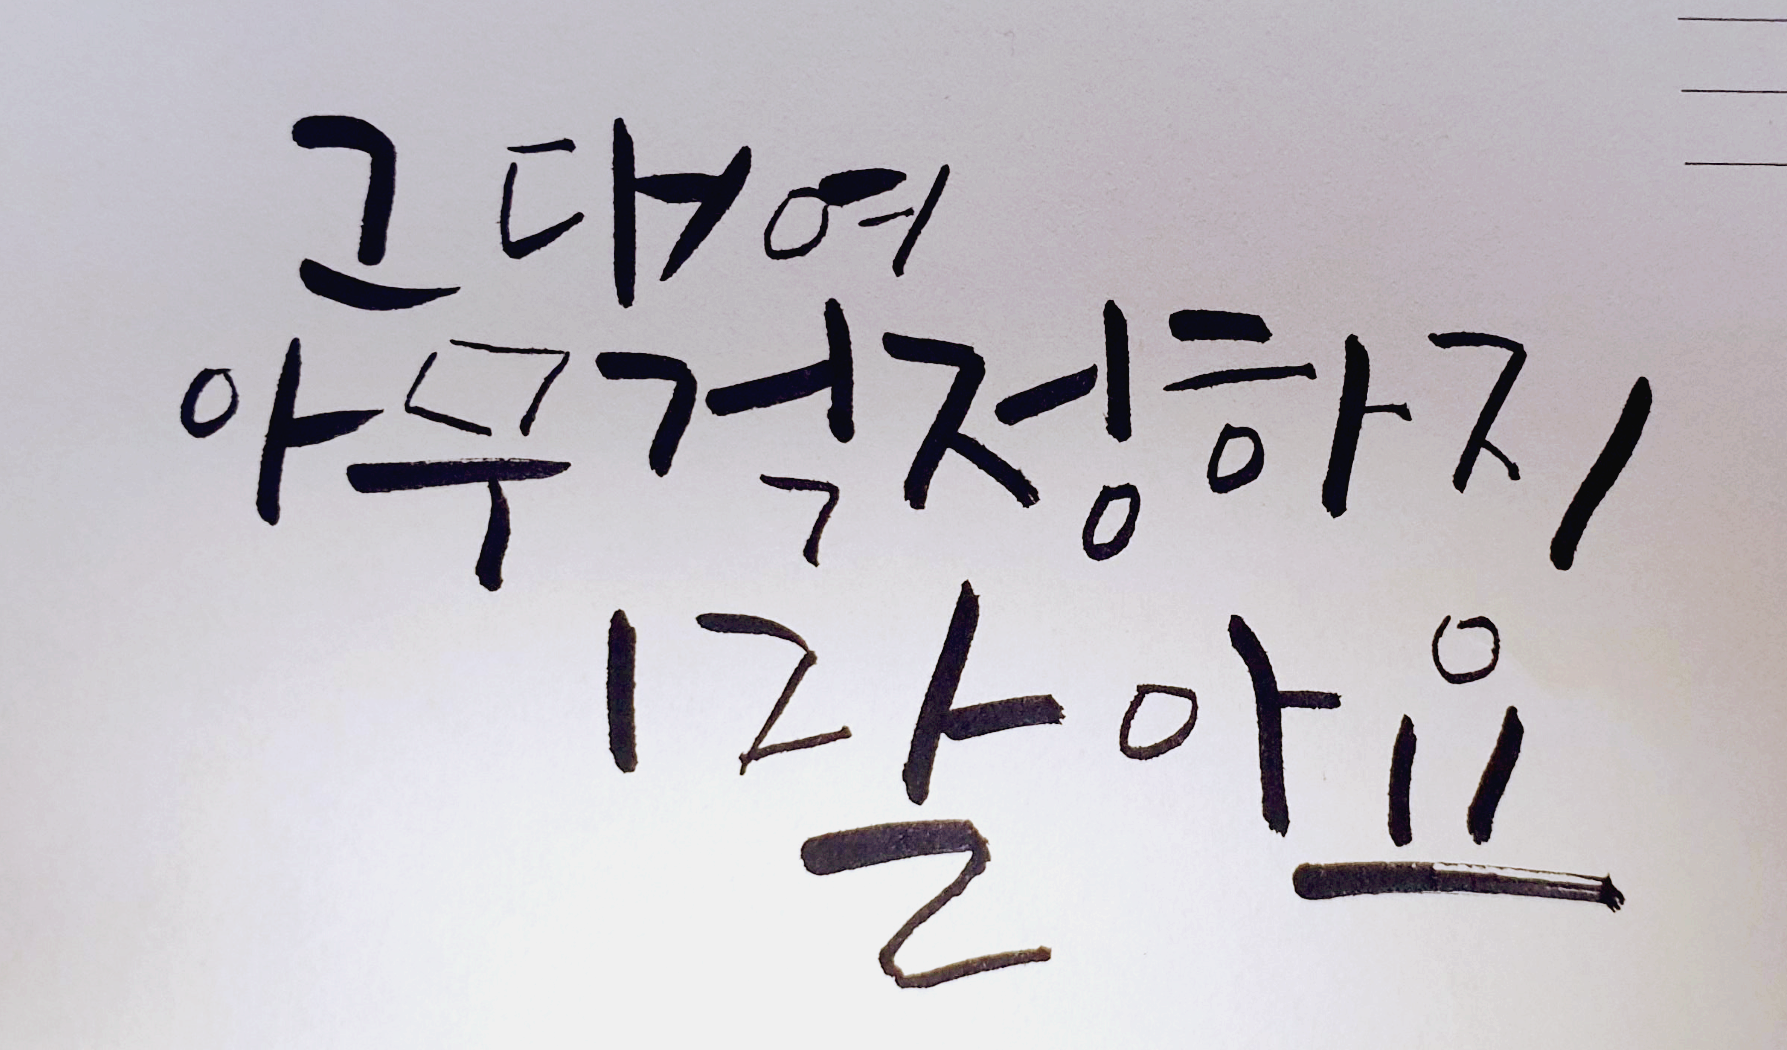 그대여
아무걱정하지
말아요